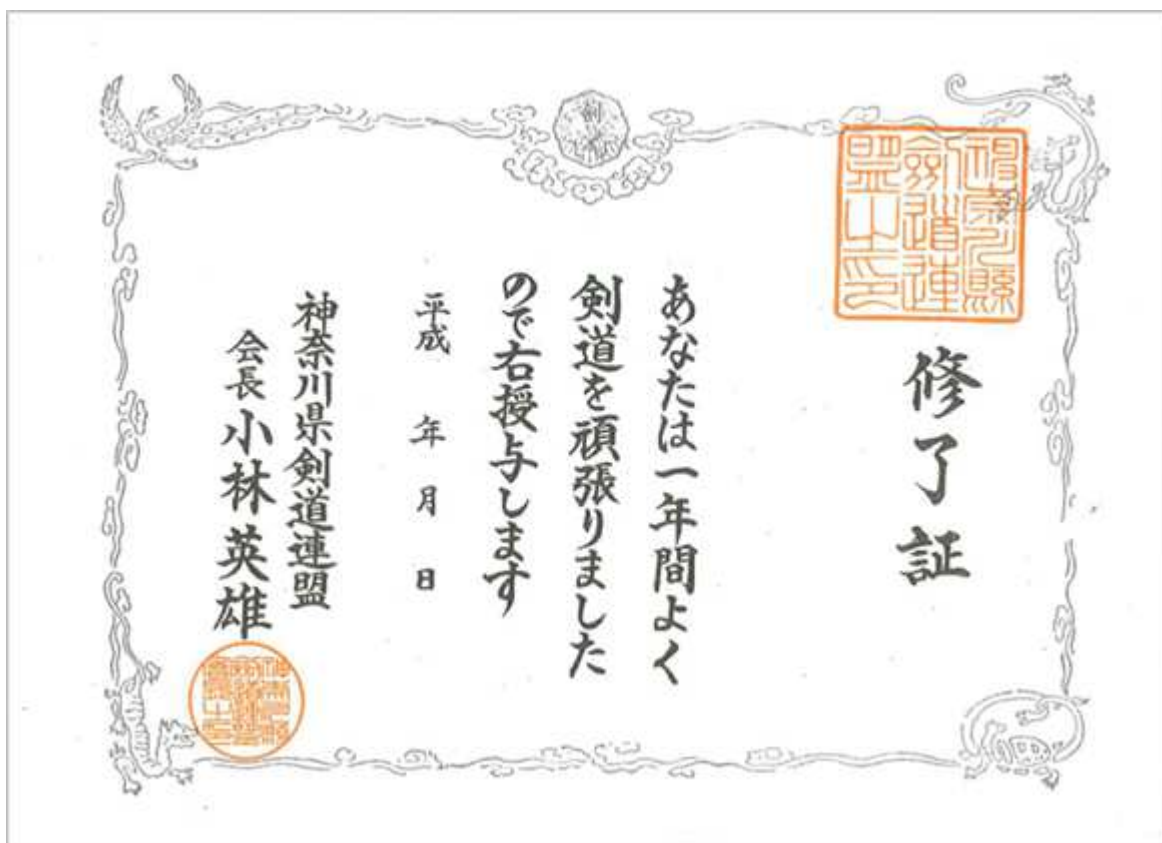 修了証
あなたは一年間よく
剣道を頑張りました
ので右授与します
平成 年 月 日
神奈川県剣道連盟
会長 小林英雄